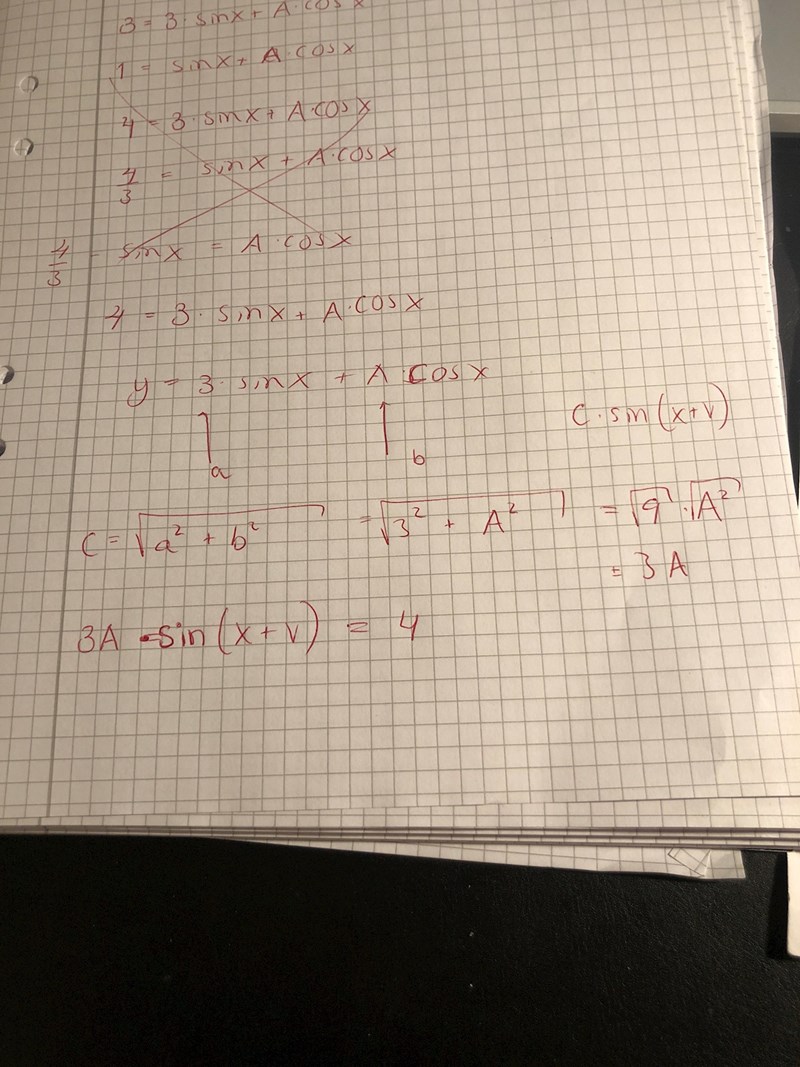 3 = 3·sinx + A·cosx
1 = sinx + A·cosx
4 = 3·sinx + A·cosx
4/3 = sinx + A·cosx
4/3 - sinx = A·cosx
4 = 3·sinx + A·cosx
y = 3·sinx + A·cosx
C·sin(x+v)
a b
C = √(a² + b²) = √(3² + A²) = √9·√A²
= 3A
3A·sin(x+v) = 4